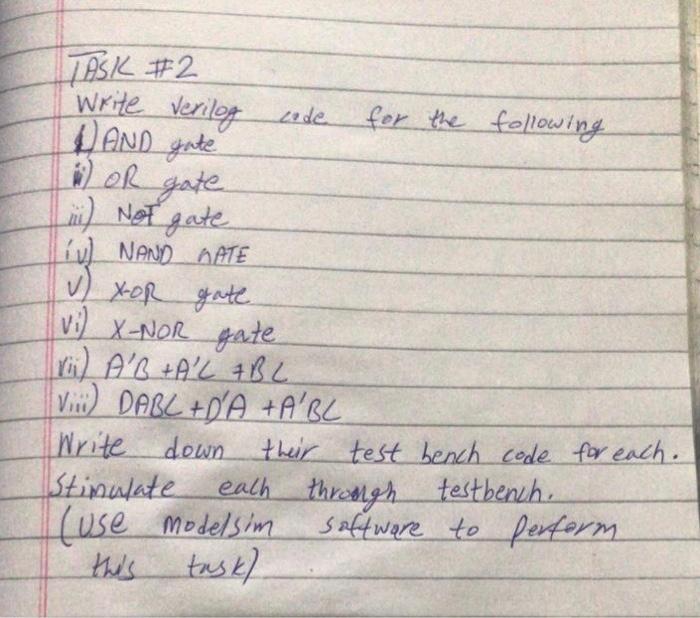 TASK #2
Write verilog code for the following
i) AND gate
ii) OR gate
iii) NOT gate
iv) NAND GATE
v) X-OR gate
vi) X-NOR gate
vii) A'B + A'C + BC
viii) DABC + D'A + A'BC
Write down their test bench code for each.
Stimulate each through testbench.
(use modelsim software to perform
this task)